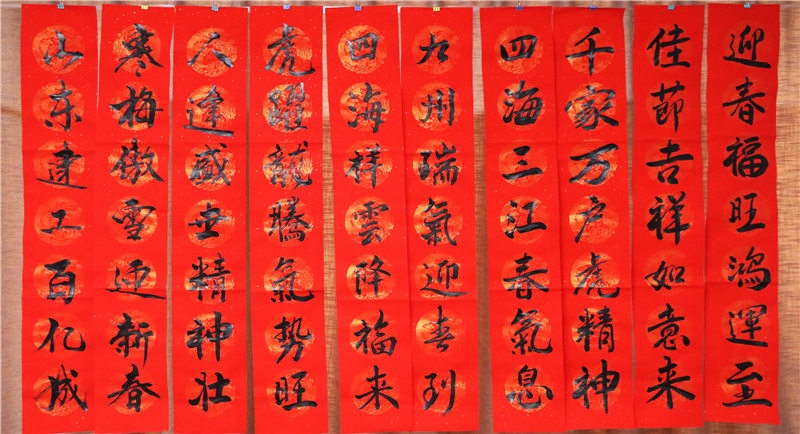 迎春福旺鸿運至
佳節吉祥如意来
千家万户虎精神
四海三江春氣息
九州瑞氣迎春到
四海祥雲降福来
虎躍龍騰氣势旺
人逢盛世精神壮
寒梅傲雪迎新春
山东建工百亿成